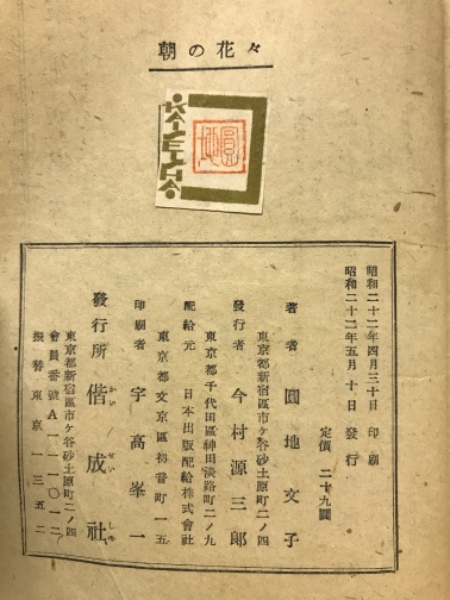 朝の花々
KAISEISHA
圓地
昭和二十二年四月三十日 印刷
昭和二十二年五月十日 發行
定價 二十九圓
著者 圓地文子
東京都新宿區市ケ谷砂土原町二ノ四
發行者 今村源三郎
東京都千代田區神田淡路町二ノ九
配給元 日本出版配給株式會社
東京都文京區初音町一五
印刷者 宇高峯一
發行所 偕成社
かい せい しや
東京都新宿區市ケ谷砂土原町二ノ四
會員番號A一一一〇一二
振替東京一三五二